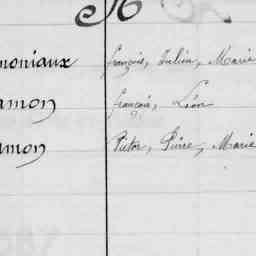 moniaux françois, Julien, Marie
amon françois, Léon
amon Victor, Pierre, Marie